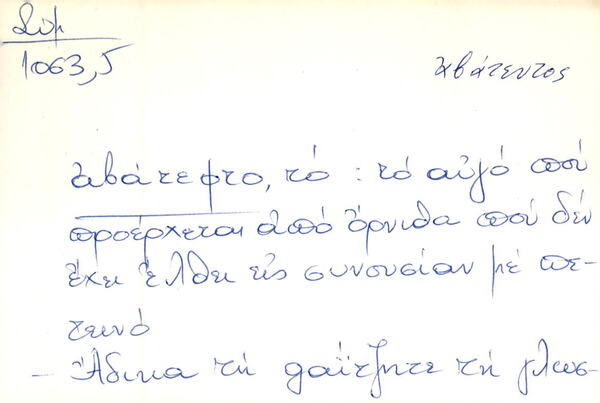 Σύμ
1063,5
ἀβάτευτος
ἀβάτεφτο, τό : τό αὐγό πού
προέρχεται ἀπό ὄρνιθα πού δέν
ἔχει ἔλθει εἰς συνουσίαν μέ πε-
τεινό
- Ἄδικα τή θαΐτζητε τή γλωσ-